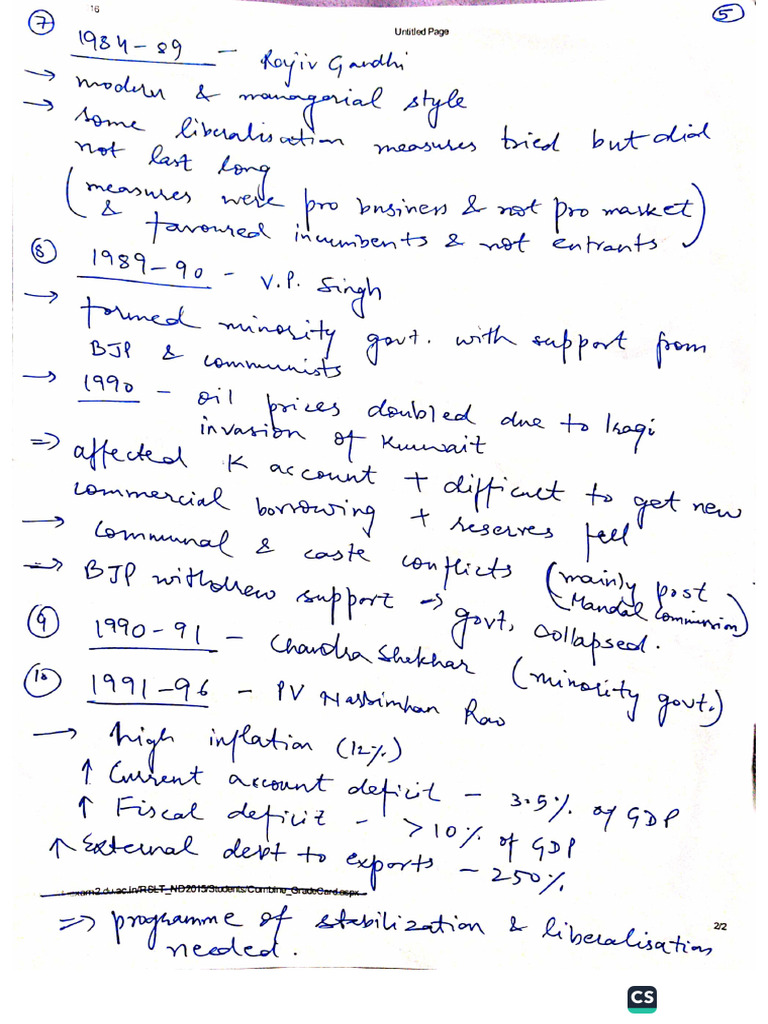 16
Untitled Page
5
7 1984-89 - Rajiv Gandhi
→ modern & managerial style
→ some liberalisation measures tried but did
not last long
(measures were pro business & not pro market
& favoured incumbents & not entrants)
8 1989-90 - V.P. Singh
→ formed minority govt. with support from
BJP & communists
→ 1990 - oil prices doubled due to Iraqi
invasion of Kuwait
⇒ affected K account + difficult to get new
commercial borrowing + reserves fell
→ communal & caste conflicts (mainly post
Mandal Commission)
⇒ BJP withdrew support → govt. collapsed.
9 1990-91 - Chandra Shekhar (minority govt.)
10 1991-96 - PV Narsimhan Rao
→ high inflation (12%)
↑ Current account deficit - 3.5% of GDP
↑ Fiscal deficit - >10% of GDP
↑ External debt to exports - 250%
exam2.du.ac.in/RSLT_ND2015/Students/Combine_GradeCard.aspx
2/2
⇒ programme of stabilization & liberalisation
needed.
CS